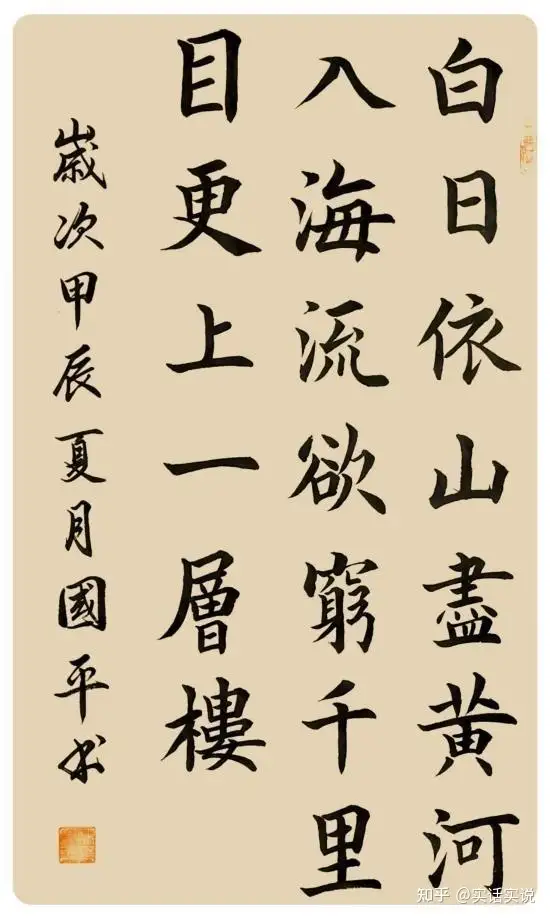 白日依山盡黄河
入海流欲窮千里
目更上一層樓
歲次甲辰夏月國平书
知乎 @实话实说